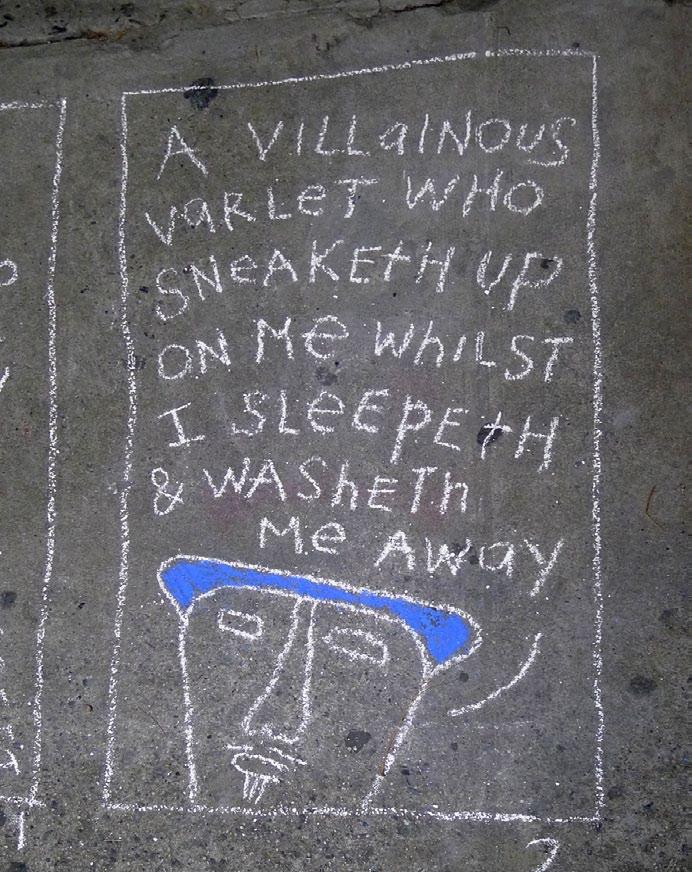 A VILLaINOUS
VaRLeT WHO
SNeAKETH UP
ON Me WhILST
I SLeEPETH
& WAShETh
Me AWay